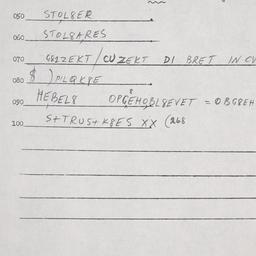 050 STOL8ER
060 STOL8ARES
070 G81ZEKT/CUZEKT DI BRET IN CV
080 $ )PILQK8E
090 HEBEL8 OPGEHOBL8EVET = OBG8EH
100 S+TRUS+K8ES XX (268